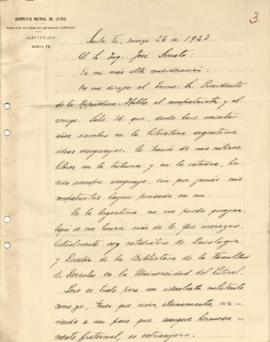 UNIVERSIDAD NACIONAL DEL LITORAL
FACULTAD DE CIENCIAS JURIDICAS Y SOCIALES
SANTA FE
3.
Santa Fe, marzo 26 de 1923.
Al Sr. Ing. José Serrato:
De mi más alta consideración:
No me dirijo al Excmo. Sr. Presidente
de la República. Hablo al compatriota y al
amigo. Sabe Ud. que, desde hace veinte
años siembro en la literatura argentina
ideas uruguayas. A través de mis
libros, en la tribuna y en la cátedra, he
sido siempre uruguayo, sin que jamás mis
compatriotas hayan pensado en mí.
De la Argentina no me puedo quejar.
Aquí se me honra más de lo que merezco.
Actualmente soy catedrático de Psicología
y Director de la Biblioteca de la Facultad
de Derecho en la Universidad del Litoral.
Pero es triste para un idealista militante
como yo, tener que vivir eternamente,
sirviendo a un país que aunque
fraternal, es extranjero.